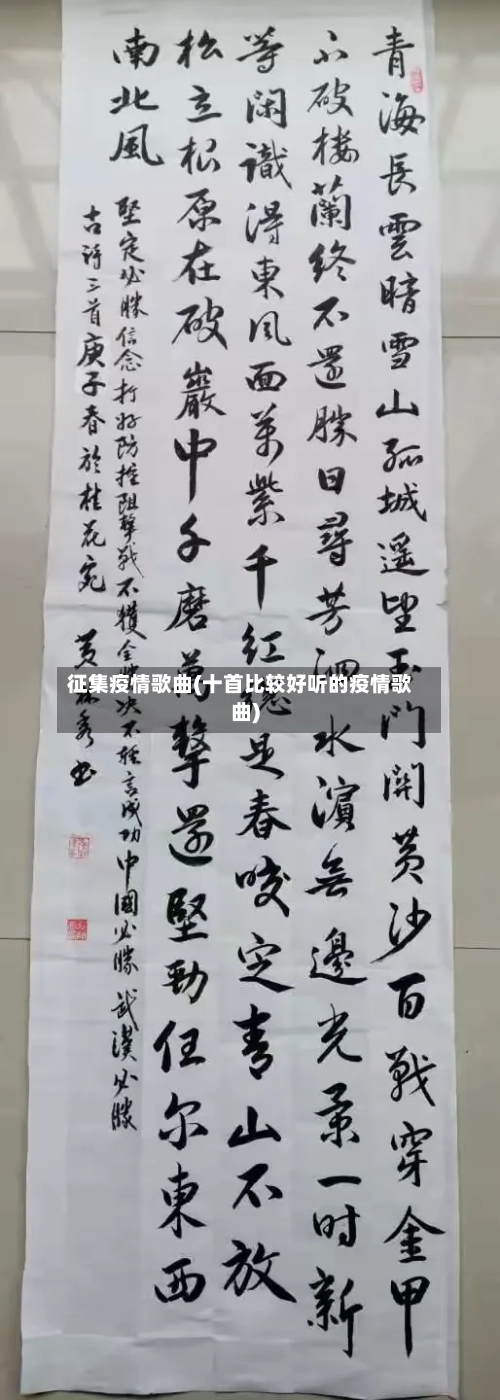 青海長雲暗雪山孤城遥望玉门關黄沙百戰穿金甲
不破楼蘭終不還勝日尋芳泗水濱無邊光景一时新
等闲識得東风面萬紫千红總是春咬定青山不放
松立根原在破巖中千磨萬擊還堅勁任尔東西
南北風
堅定必勝信念打好防控阻擊戰不獲全勝决不轻言成功中國必勝武漢必勝
古诗三首庚子春於桂花宛
黄林秀书
征集疫情歌曲(十首比较好听的疫情歌
曲)